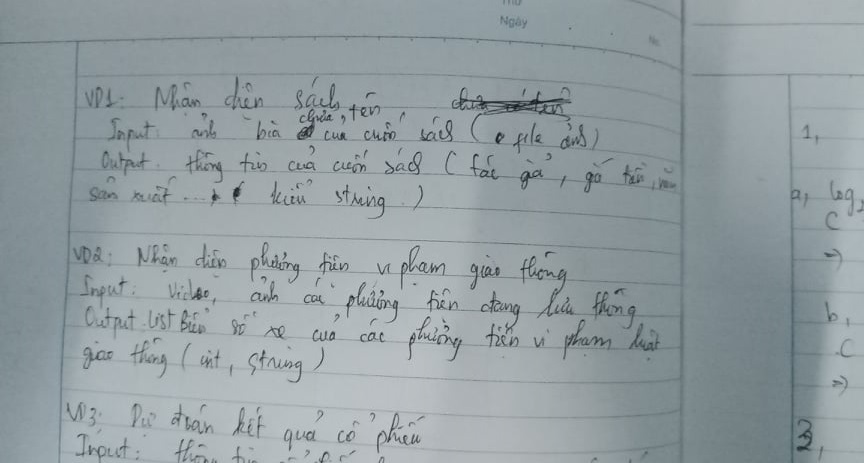 Ngày
VD1: Nhân diên sách
Input: ảnh bìa chứa tên của cuốn sách ( file ảnh)
Output: thông tin của cuốn sách (tác giả, giá tiền, năm
sản xuất ... kiểu string.)
VD2: Nhận diện phương tiện vi phạm giao thông
Input: Video, ảnh các phương tiện đang lưu thông
Output: List Biển số xe của các phương tiện vi phạm luật
giao thông (int, string)
VD3: Dự đoán kết quả cổ phiếu
Input: thông tin
1,
a, log2
C
=>
b,
C
=>
3,